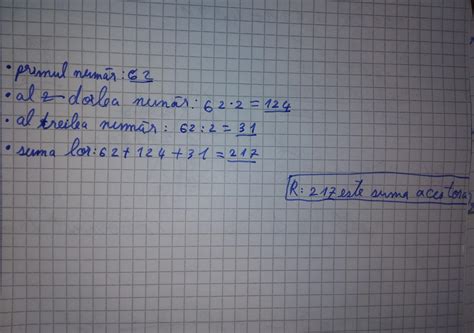 • primul număr: 62
• al doilea număr: 62·2=124
• al treilea număr: 62:2=31
• suma lor: 62+124+31=217
R: 217 este suma acestora